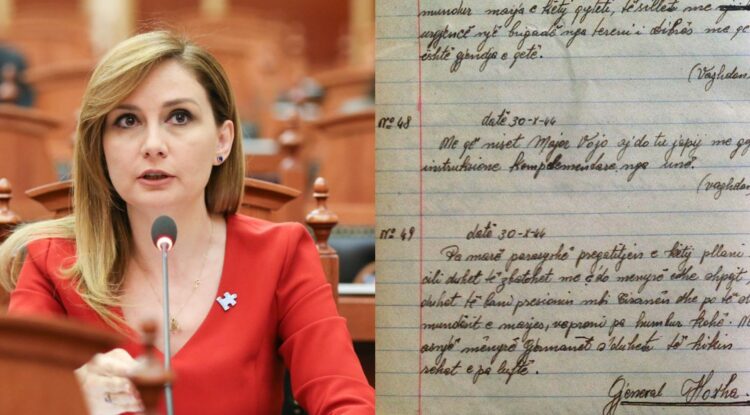 mundur marja e këtij qyteti, të sillet me
urgjencë një brigadë nga tereni i dibrës me
është gjendja e qetë.
Nº 48 datë 30-X-44
Me që niset Major Vojo aj do tu japij me
instruksione komplementare nga unë.
Nº 49 datë 30-X-44
Pa marë parasyshë pregatitjen e këtij pllani
cili duhet të zbatohet me çdo menyrë edhe ahpgjt
duhet të bani presionin mbi Tiranën dhe po të
mundësit e marjes, veproni pa humbur kohë.
asnjë mënyrë Gjermanët s'duhen të hikin
rehat e pa luftë.
Gjeneral Hoxha